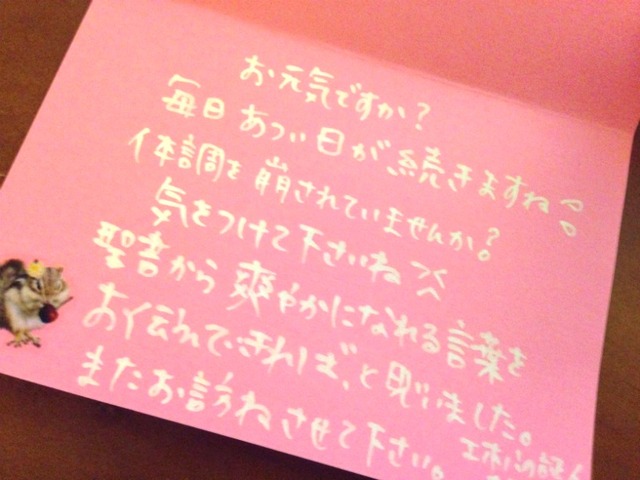 お元気ですか?
毎日 あつい日が、続きますね。。
体調を 崩されていませんか?
気をつけて下さいね
聖書から 爽やかになれる言葉を
お伝えできれば、と思いました。
またお訪ねさせて下さい。
エホバの証人